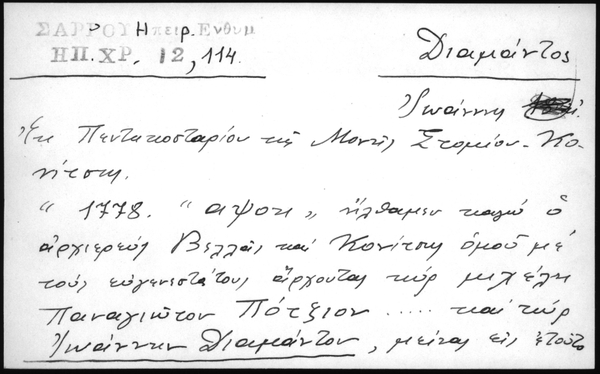 ΣΑΡΡΟΥ Ηπειρ. Ενθυμ
ΗΠ. ΧΡ. 12, 114.
Διαμάντος
Ἰωάννης
Ἐκ Πεντηκοσταρίου τῆς Μονῆς Στομίου - Κο-
νίτσης.
" 1778. " αψοη " ἤλθαμεν καγώ ὁ
ἀρχιερεύς Βελλᾶς καί Κονίτσης ὁμοῦ μέ
τούς εὐγενεστάτους ἄρχοντας κύρ μιχέλη
Παναγιώτου Πότζιου ..... καί κύρ
Ἰωάννην Διαμάντου, μείνας εἰς ἐτοῦτο